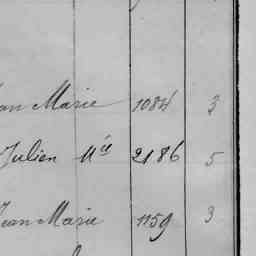 Jean Marie 1084 3
Julien Mie 2186 5
Jean Marie 1159 3